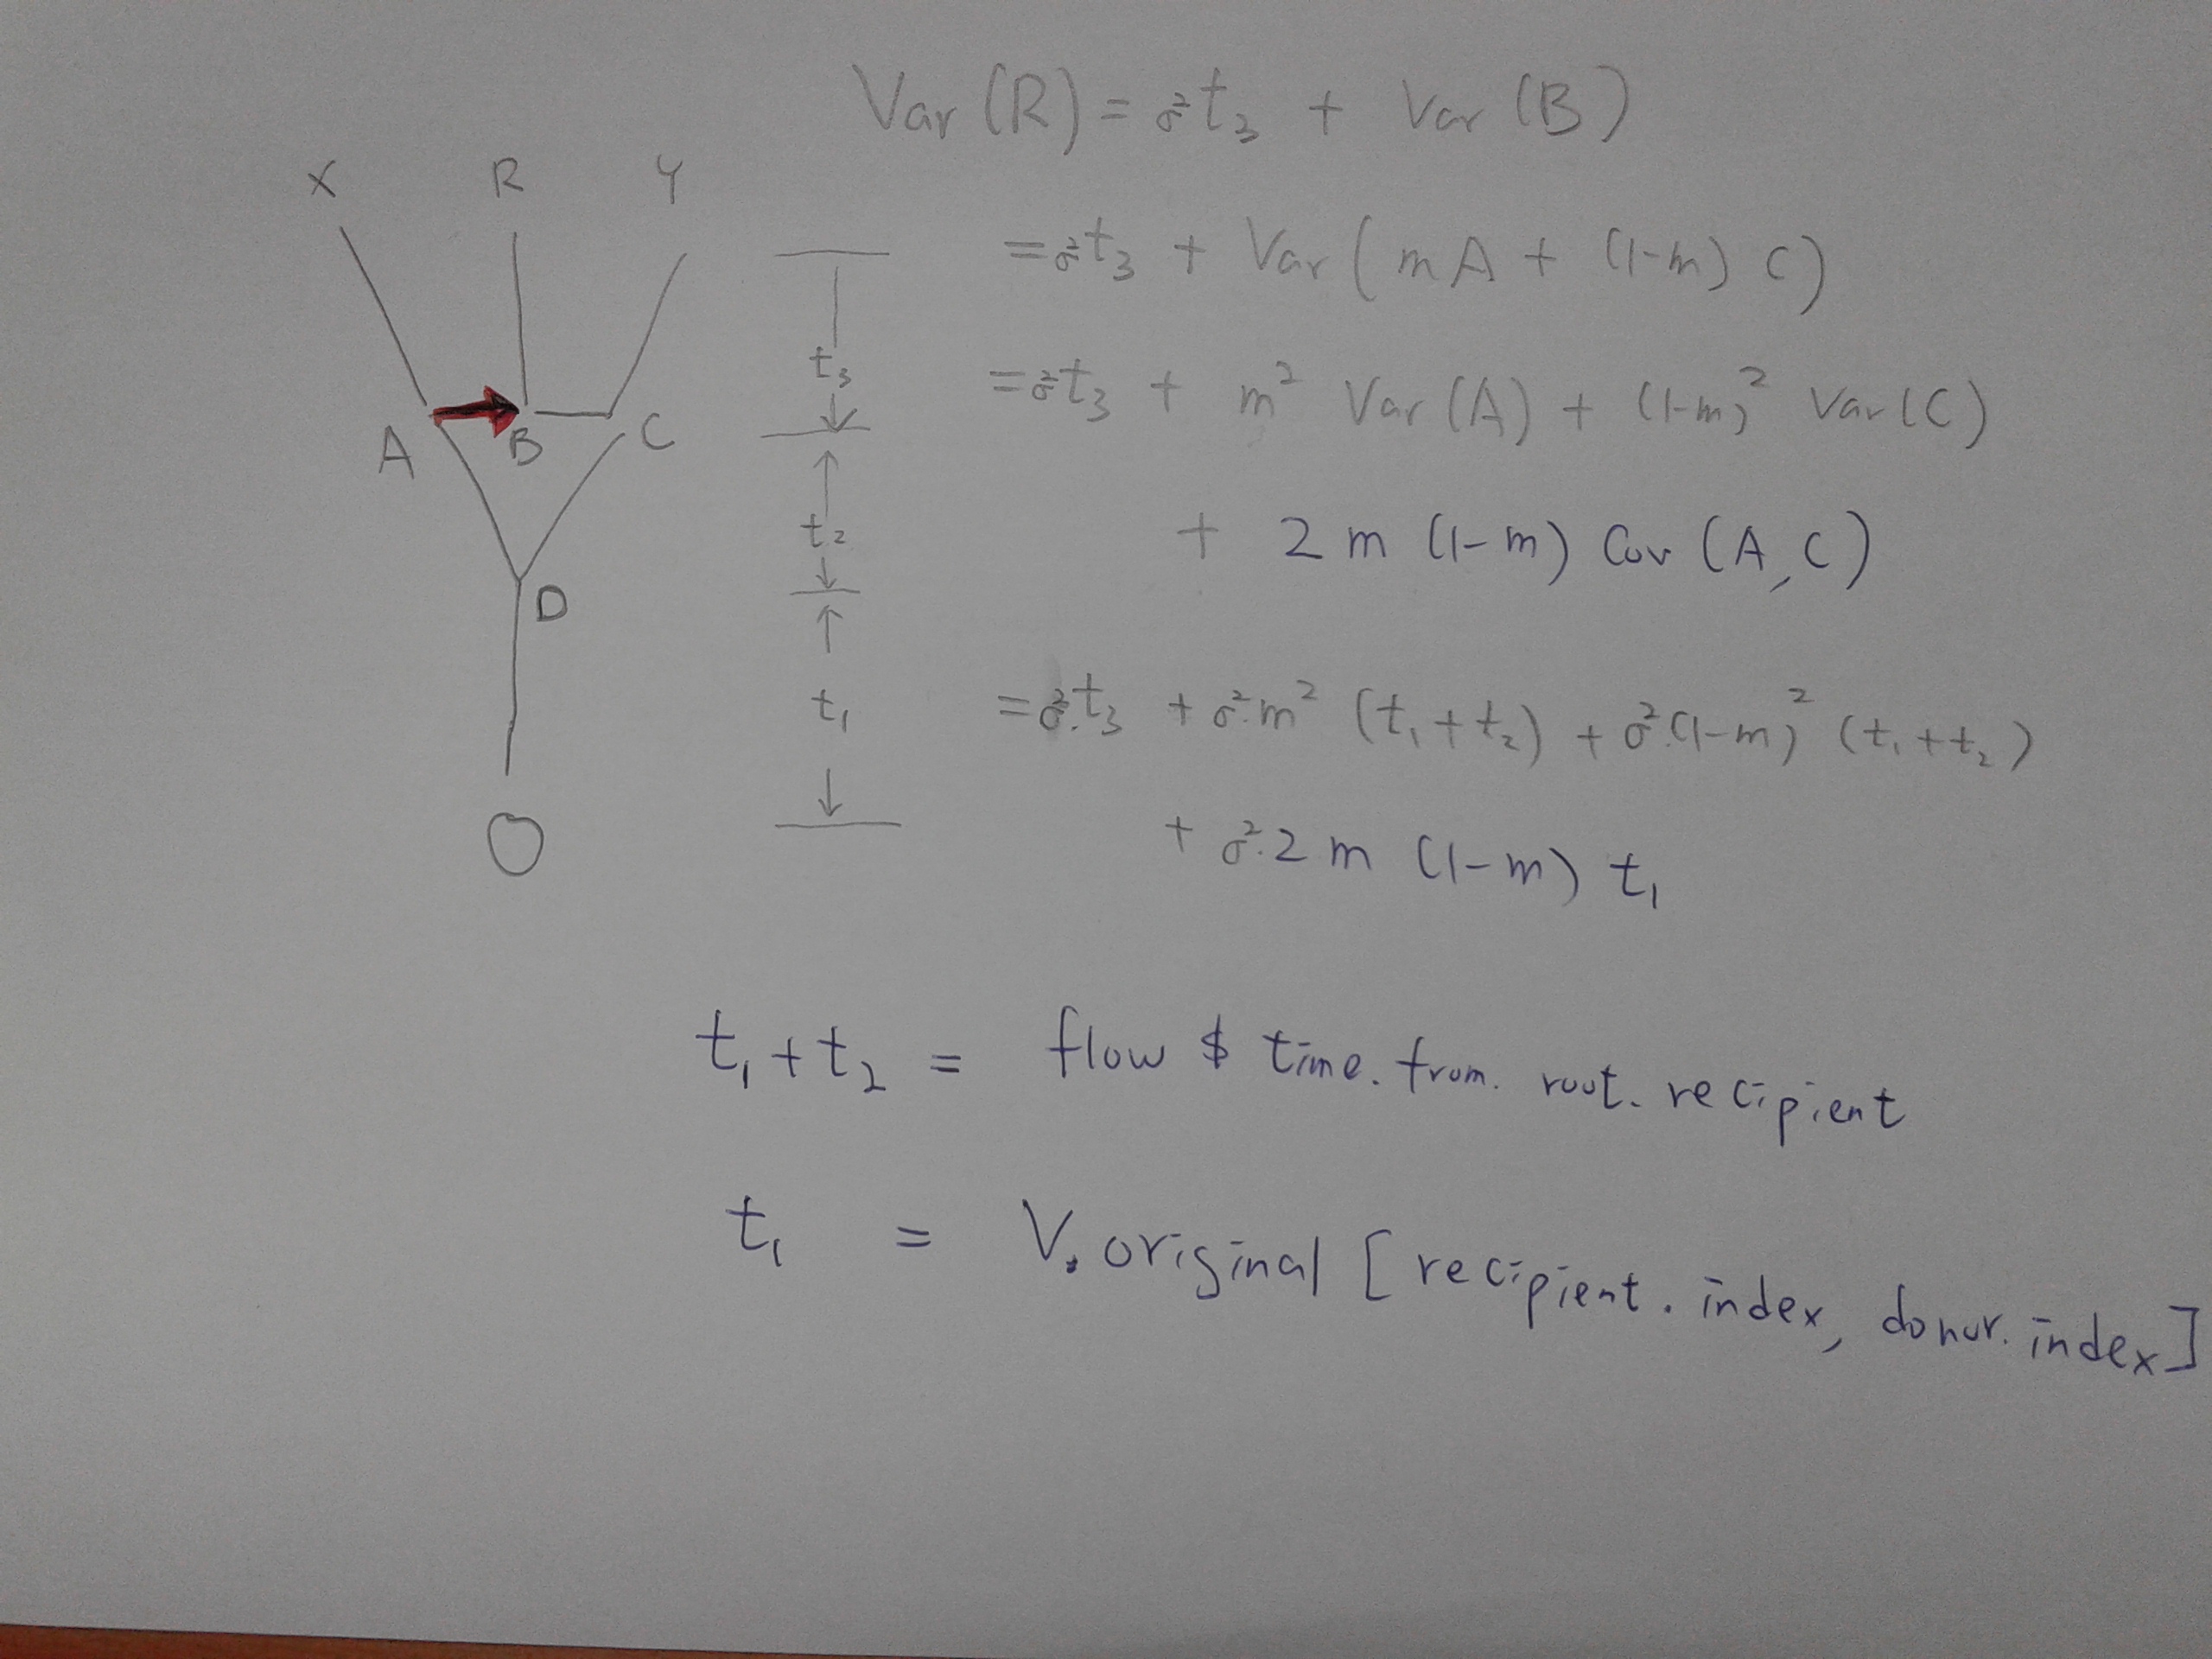 Var (R) = σ² t₃ + Var (B)
X R Y
= σ² t₃ + Var ( m A + (1-m) C )
t₃
= σ² t₃ + m² Var (A) + (1-m)² Var (C)
A B C
t₂
+ 2 m (1-m) Cov (A, C)
D
t₁
= σ². t₃ + σ². m² (t₁ + t₂) + σ². (1-m)² (t₁ + t₂)
+ σ². 2 m (1-m) t₁
O
t₁ + t₂ = flow $ time. from. root. recipient
t₁ = V. original [ recipient. index, donor. index ]